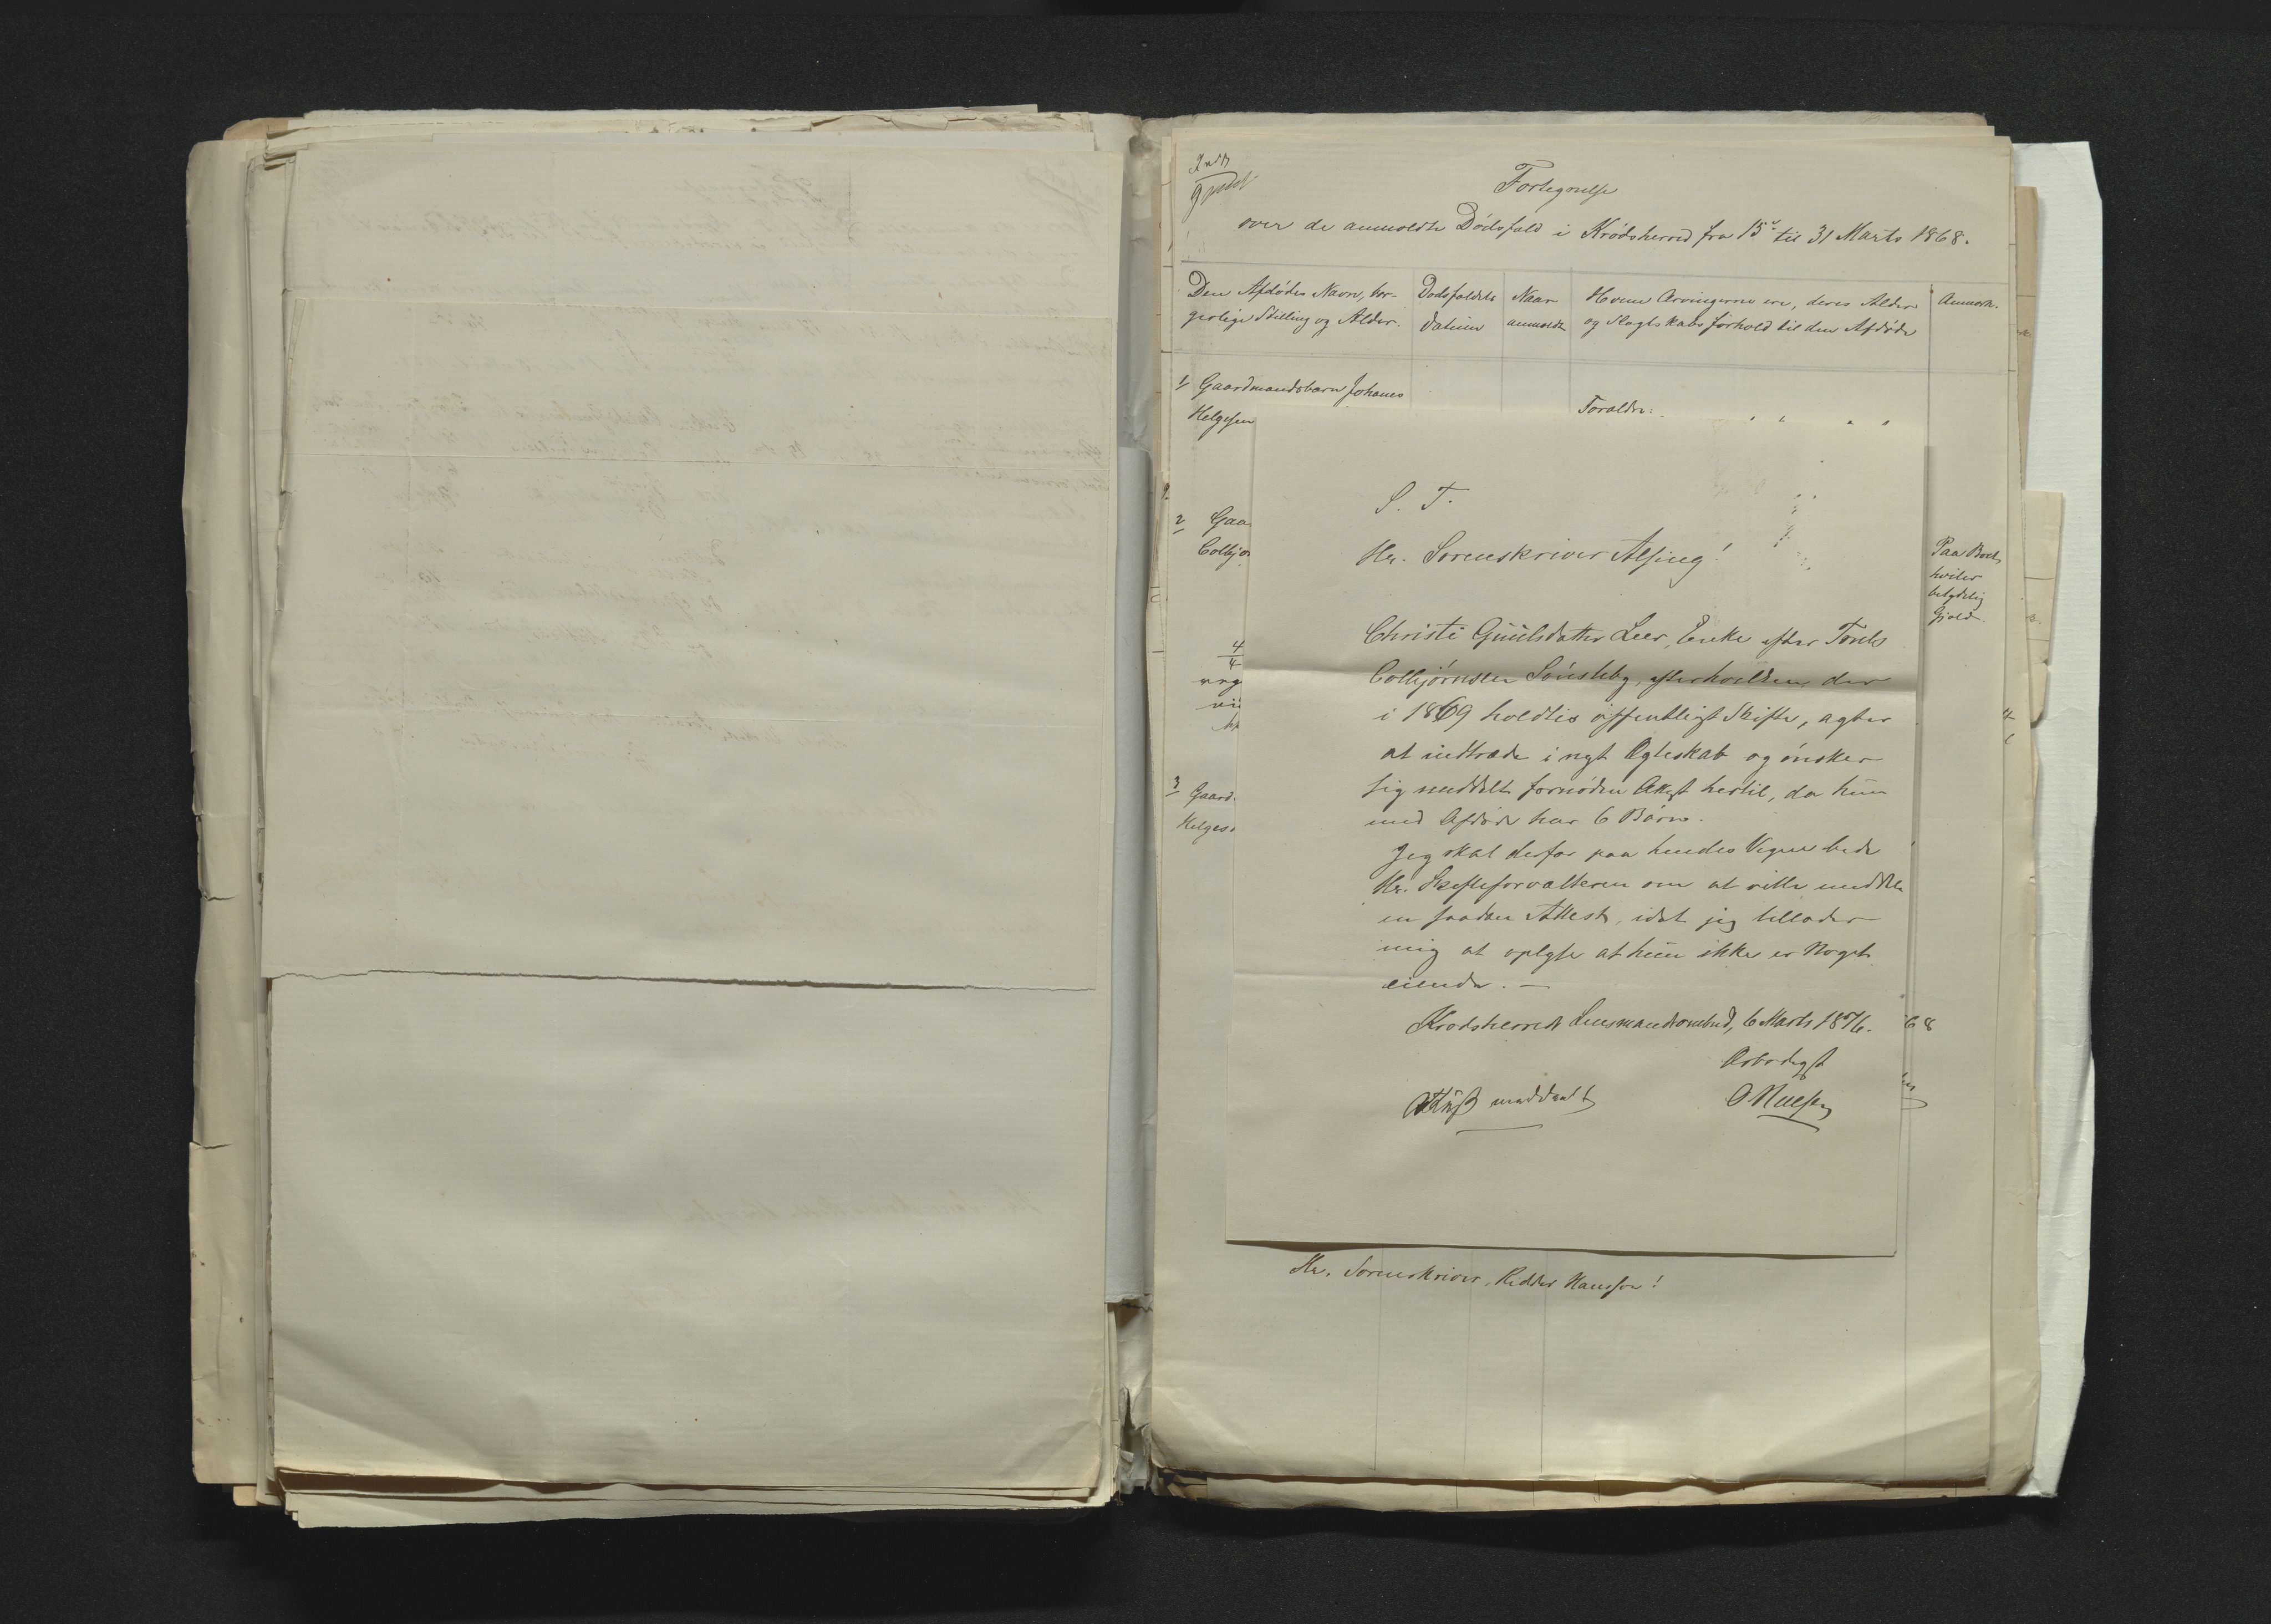 Fortegnelse
over de anmeldte Dödsfald i Krödsherred fra 15de til 31 Marts 1868.
Den Afdödes Navn, bor-
gerlige Stilling og Alder.
Dödsfaldets
Datum
Naar
anmeldt
Hvem Arvingerne ere, deres Alder
og Slægtskabsforhold til den Afdöde
Anmærk.
1 Gaardmandsbarn Johanes
Helgesen
Forældre:
2 Gaa
Colbjö
Paa Boet
hviler
betydelig
Gjæld.
4
4
3 Gaard
Helges
S. T.
Hr. Sorenskriver Alsing!
Christi Guulsdatter Leer, Enke efter Torels
Colbjörnsen Sönsteby, efter hvilken der
i 1869 holdtes offentligt Skifte, agter
at indtræde i nyt Ægteskab og önsker
sig meddelt fornöden Attest hertil, da hun
med Afdöde har 6 Börn.
Jeg skal derfor paa hendes Vegne bede
Hr. Skifteforvalteren om at ville meddele
en saadan Attest, idet jeg tillader
mig at oplyse at hun ikke er Noget
eiende. —
Krödsherred Lensmandsombud, 6 Marts 1876.
68
Ærbödigst
O Nilsen
Attest meddeelt
Hr. Sorenskriver, Ridder Hansson!